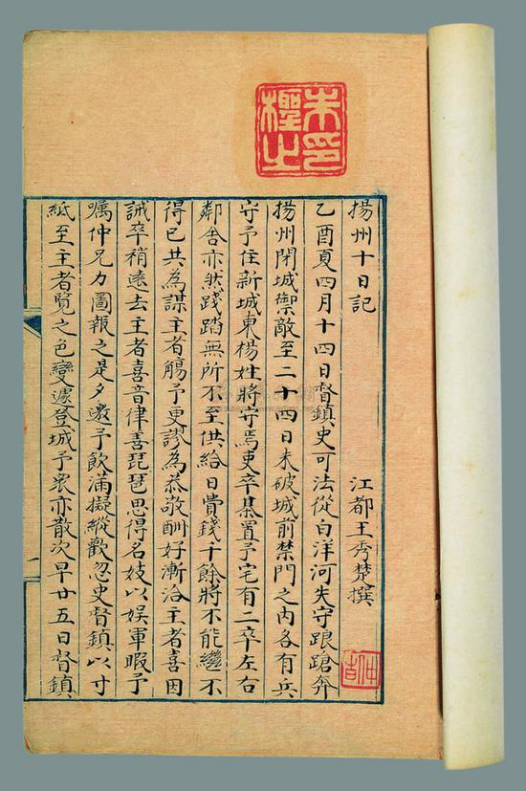 揚州十日記
江都王秀楚撰
乙酉夏四月十四日督鎮史可法從白洋河失守踉蹌奔
揚州閉城禦敵至二十四日未破城前禁門之內各有兵
守予住新城東楊姓將守焉吏卒棊置予宅有二卒左右
鄰舍亦然踐踏無所不至供給日費錢千餘將不能繼不
得已共為謀主者觴予更謬為恭敬酬好漸洽主者喜因
誡卒稍遠去主者喜音律善琵琶思得名妓以娛軍暇予
囑仲兄力圖報之是夕邀予飲滿擬縱歡忽史督鎮以寸
紙至主者覽之色變遽登城予衆亦散次早廿五日督鎮